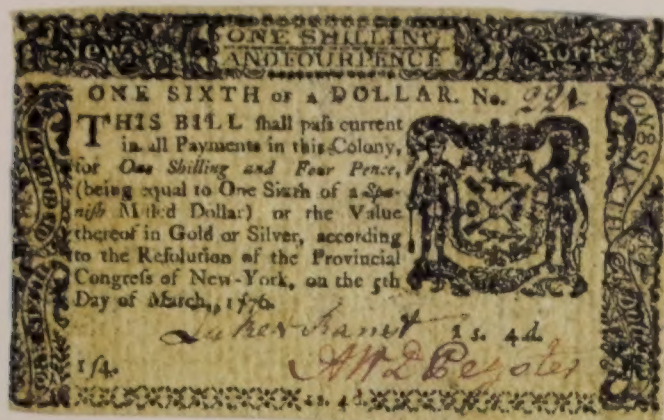 New-
ONE SHILLING
York.
AND FOUR PENCE
ONE SIXTH OF A DOLLAR. No. 221
THIS BILL ſhall paſs current
in all Payments in this Colony,
for One Shilling and Four Pence,
(being equal to One Sixth of a Spa-
niſh Milled Dollar) or the Value
thereof in Gold or Silver, according
to the Reſolution of the Provincial
Congreſs of New-York, on the 5th
Day of March, 1776.
1s. 4d.
1ſ4.
1s. 4d.
ONE SIXTH